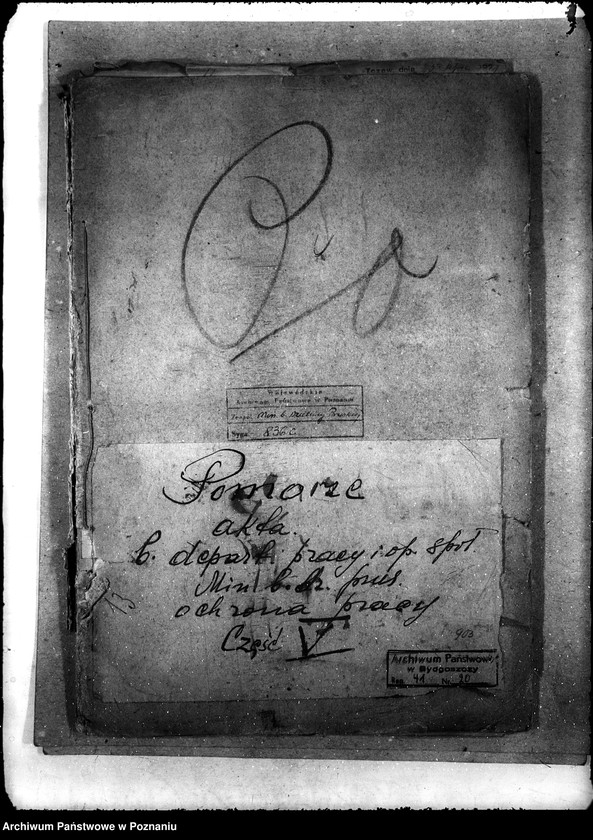 Toruń, dnia
Wojewódzkie
Archiwum Państwowe w Poznaniu
Zespół Min. b. Dzielnicy Pruskiej
Sygn. 836 c.
Pomorze
akta
b. depart. pracy i op. społ.
Min. b. dz. prus.
ochrona pracy
Część V
903
Archiwum Państwowe
w Bydgoszczy
Rep. 41 Nr. 20
Archiwum Państwowe w Poznaniu